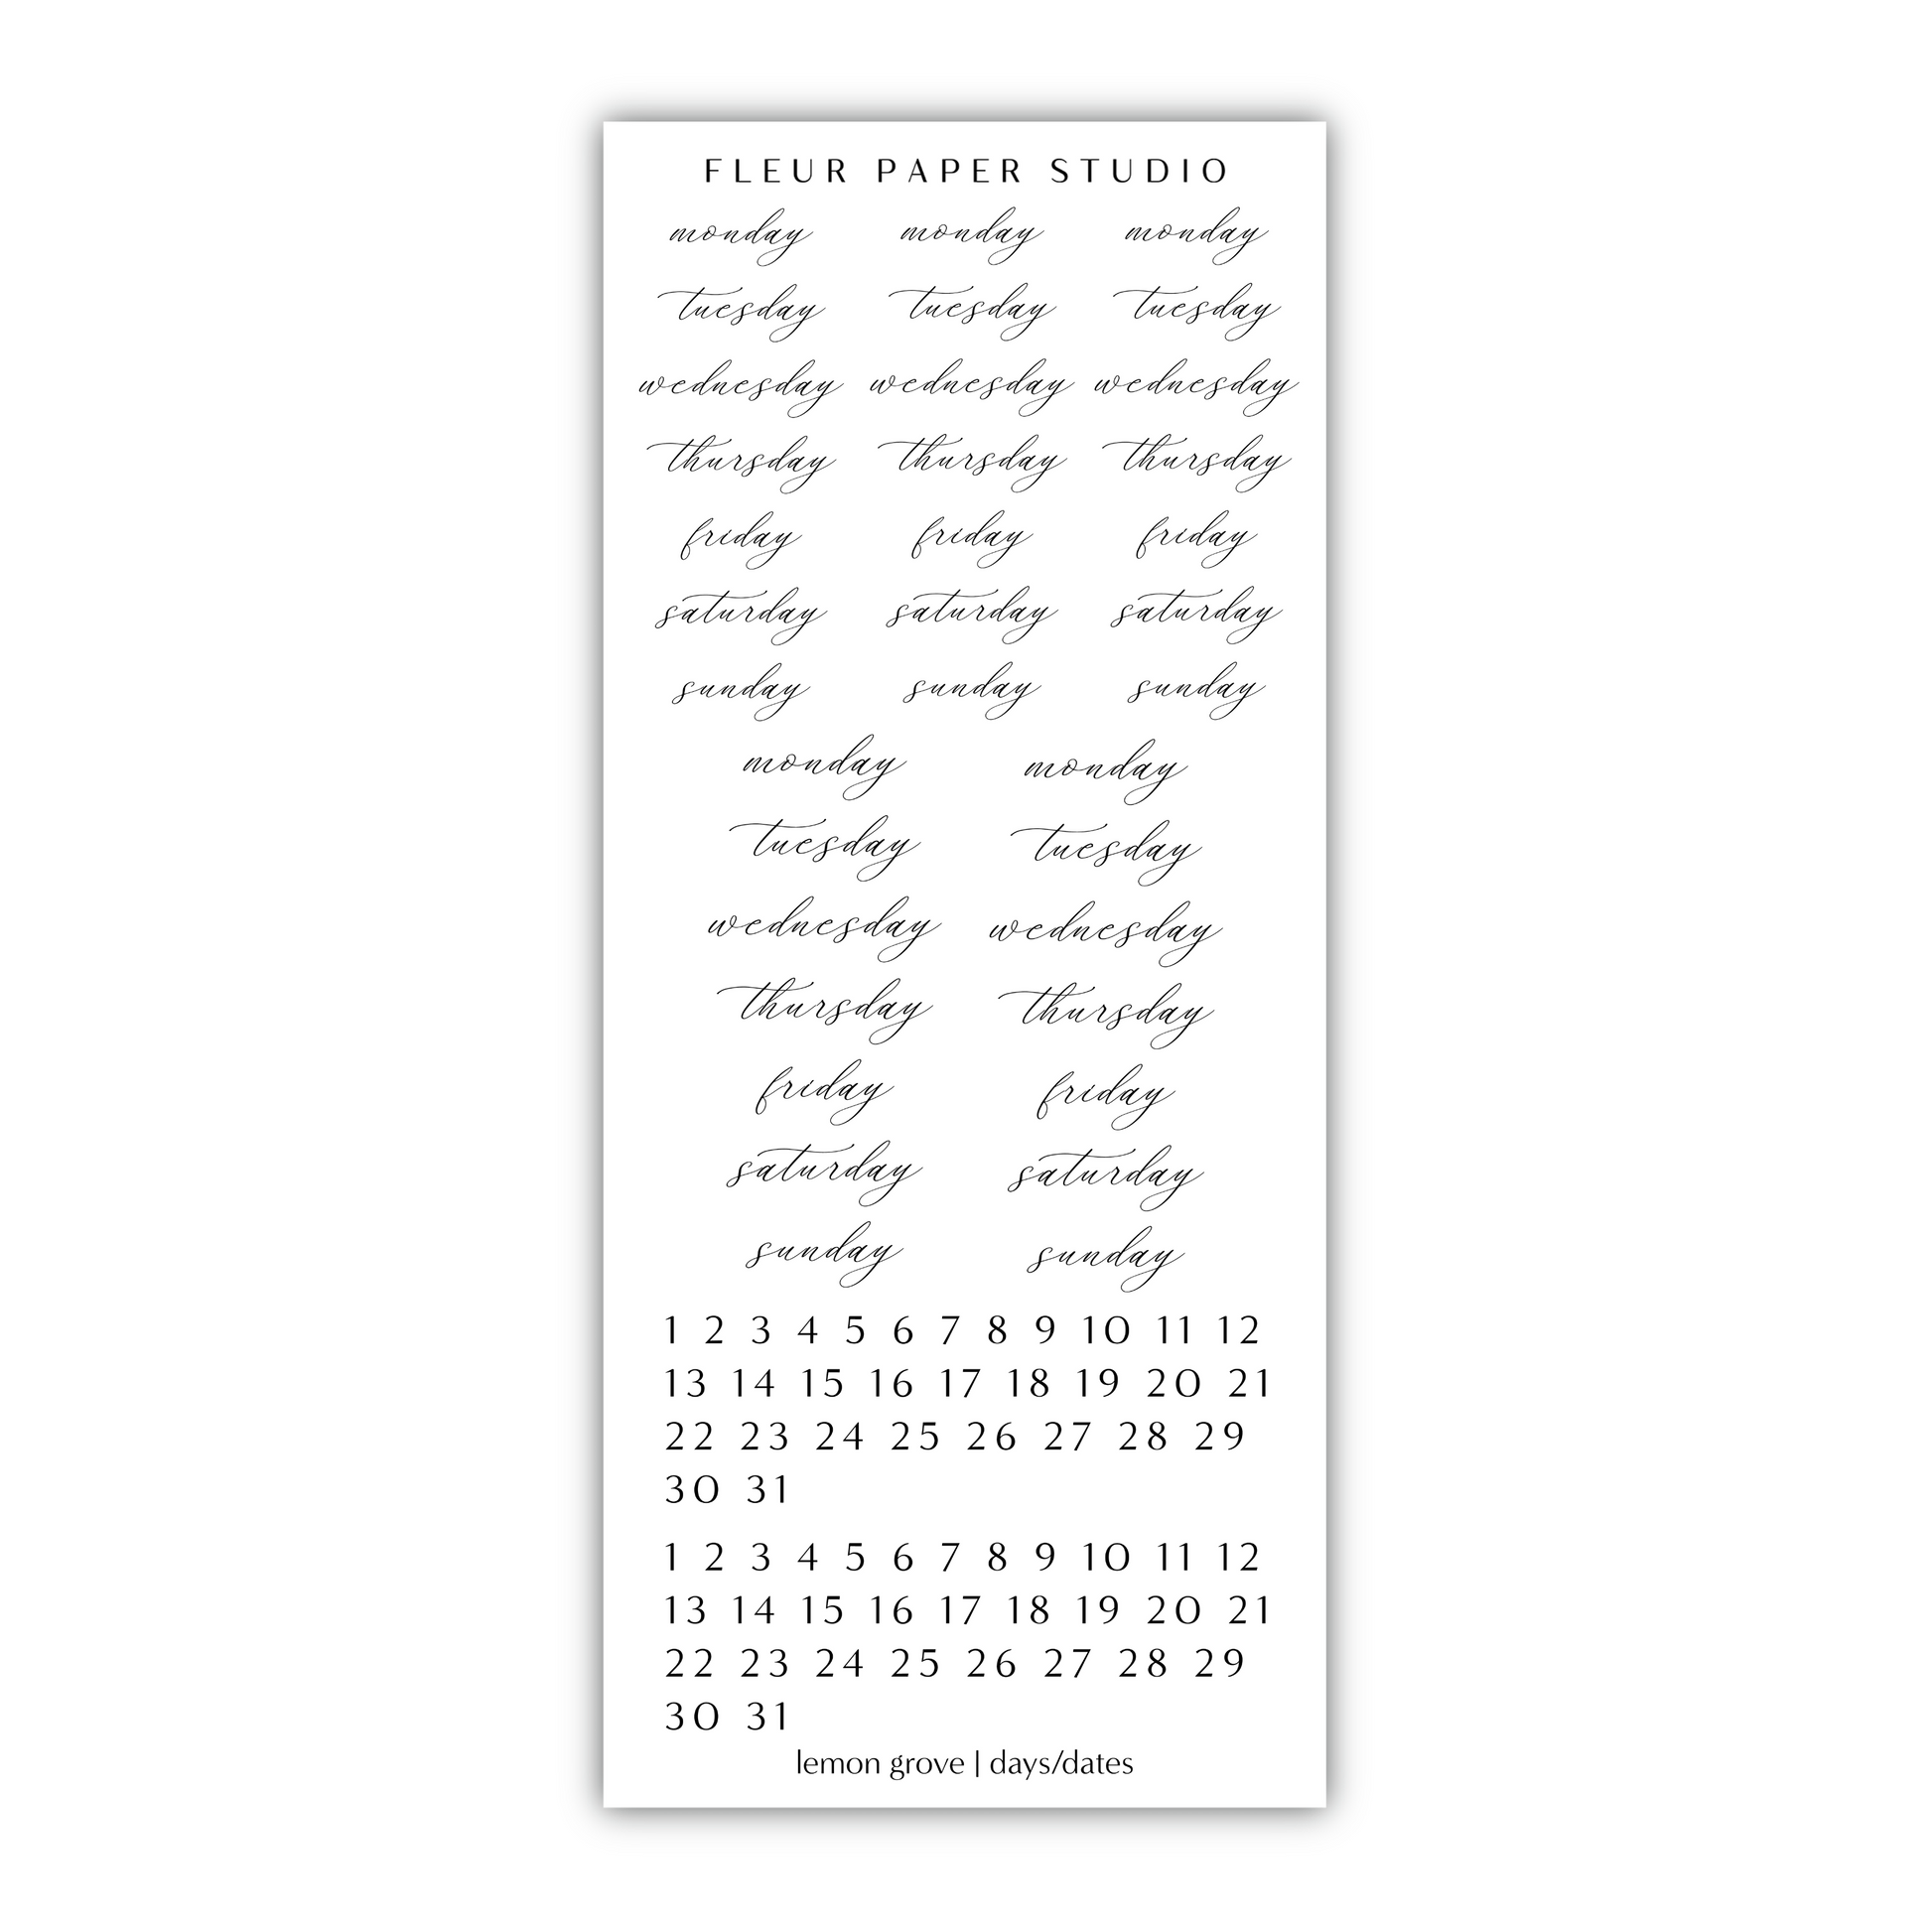 FLEUR PAPER STUDIO
monday monday monday
tuesday tuesday tuesday
wednesday wednesday wednesday
thursday thursday thursday
friday friday friday
saturday saturday saturday
sunday sunday sunday
monday monday
tuesday tuesday
wednesday wednesday
thursday thursday
friday friday
saturday saturday
sunday sunday
1 2 3 4 5 6 7 8 9 10 11 12
13 14 15 16 17 18 19 20 21
22 23 24 25 26 27 28 29
30 31
1 2 3 4 5 6 7 8 9 10 11 12
13 14 15 16 17 18 19 20 21
22 23 24 25 26 27 28 29
30 31
lemon grove | days/dates